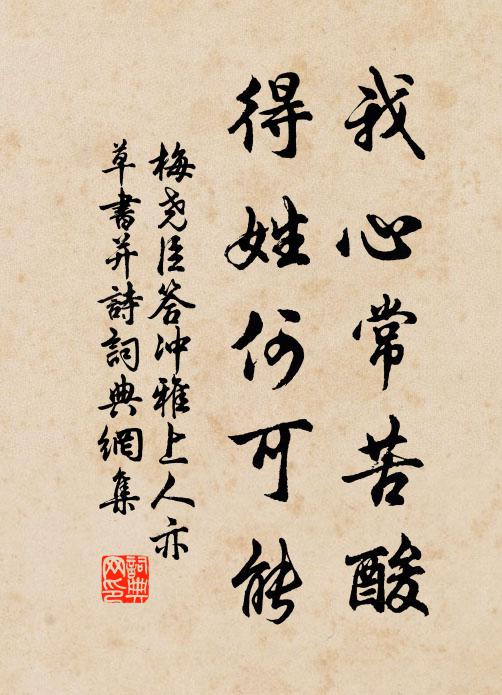 我心常苦酸
得姓何可能
梅尧臣答冲雅上人亦
草書并詩詞典網集
詞典网印